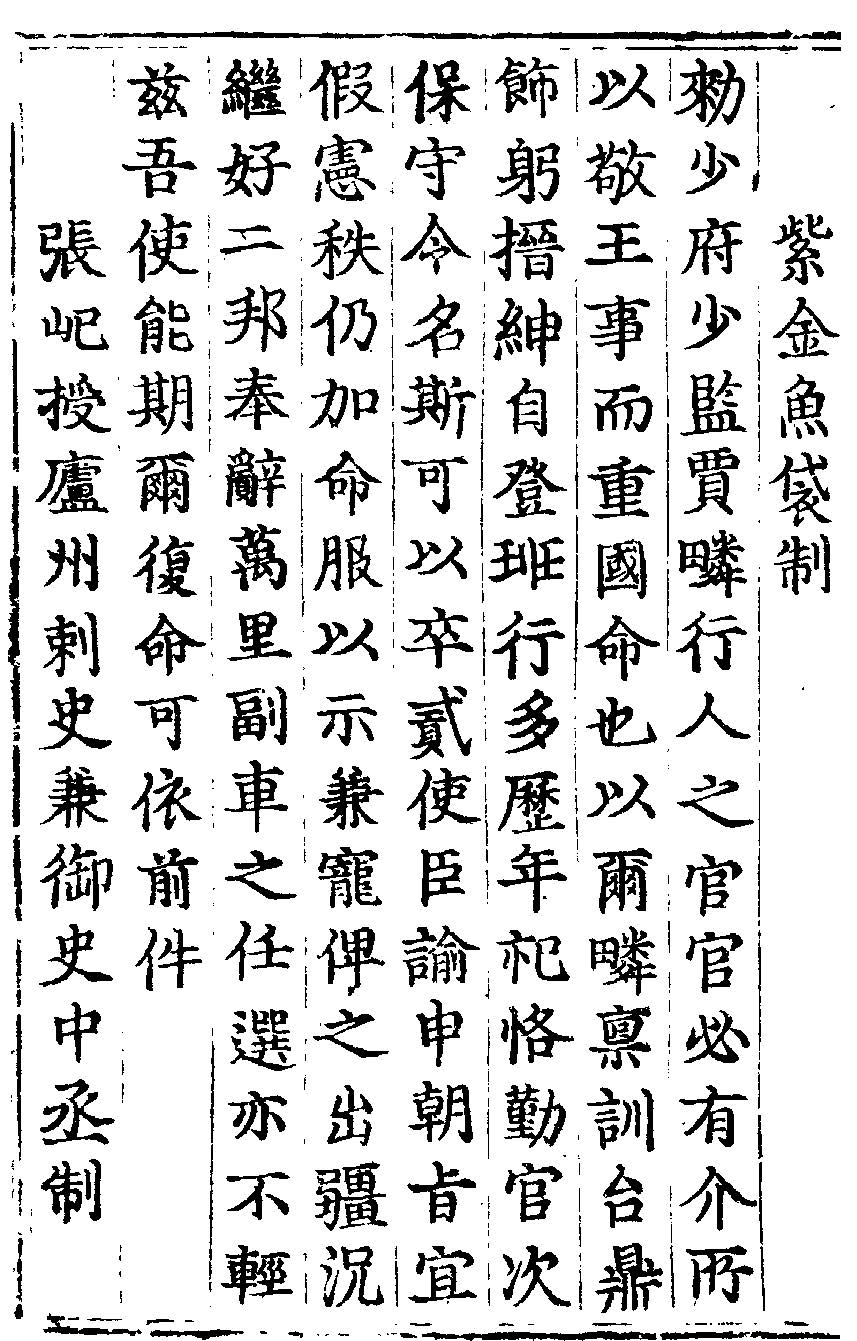 紫金魚袋制
勑少府少監賈疄行人之官官必有介所
以敬王事而重國命也以爾疄稟訓台鼎
飾躬搢紳自登班行多歷年祀恪勤官次
保守令名斯可以卒貳使臣諭申朝旨宜
假憲秩仍加命服以示兼寵俾之出疆況
繼好二邦奉辭萬里副車之任選亦不輕
茲吾使能期爾復命可依前件
張屺授廬州刺史兼御史中丞制